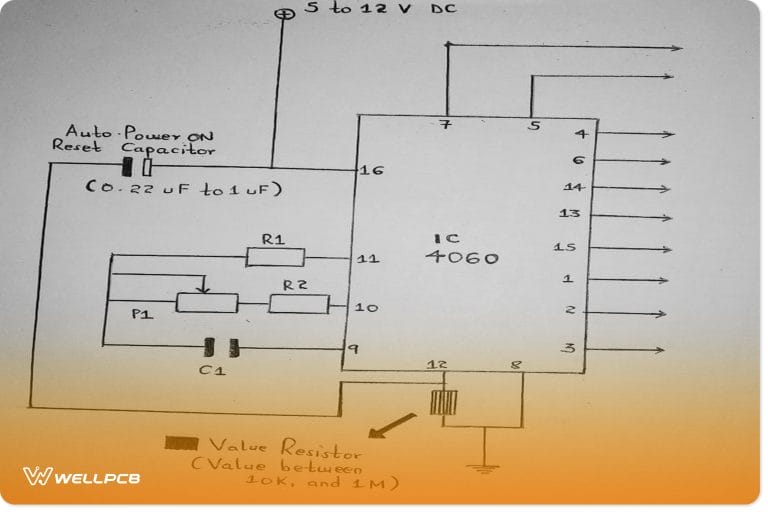 5 to 12 V DC
7
5
Auto-Power ON
Reset Capacitor
(0.22 uF to 1 uF)
16
4
6
14
13
15
1
2
3
IC
4060
R1
11
R2
10
P1
9
C1
12
8
Value Resistor
(Value between
10K, and 1M)
WELLPCB